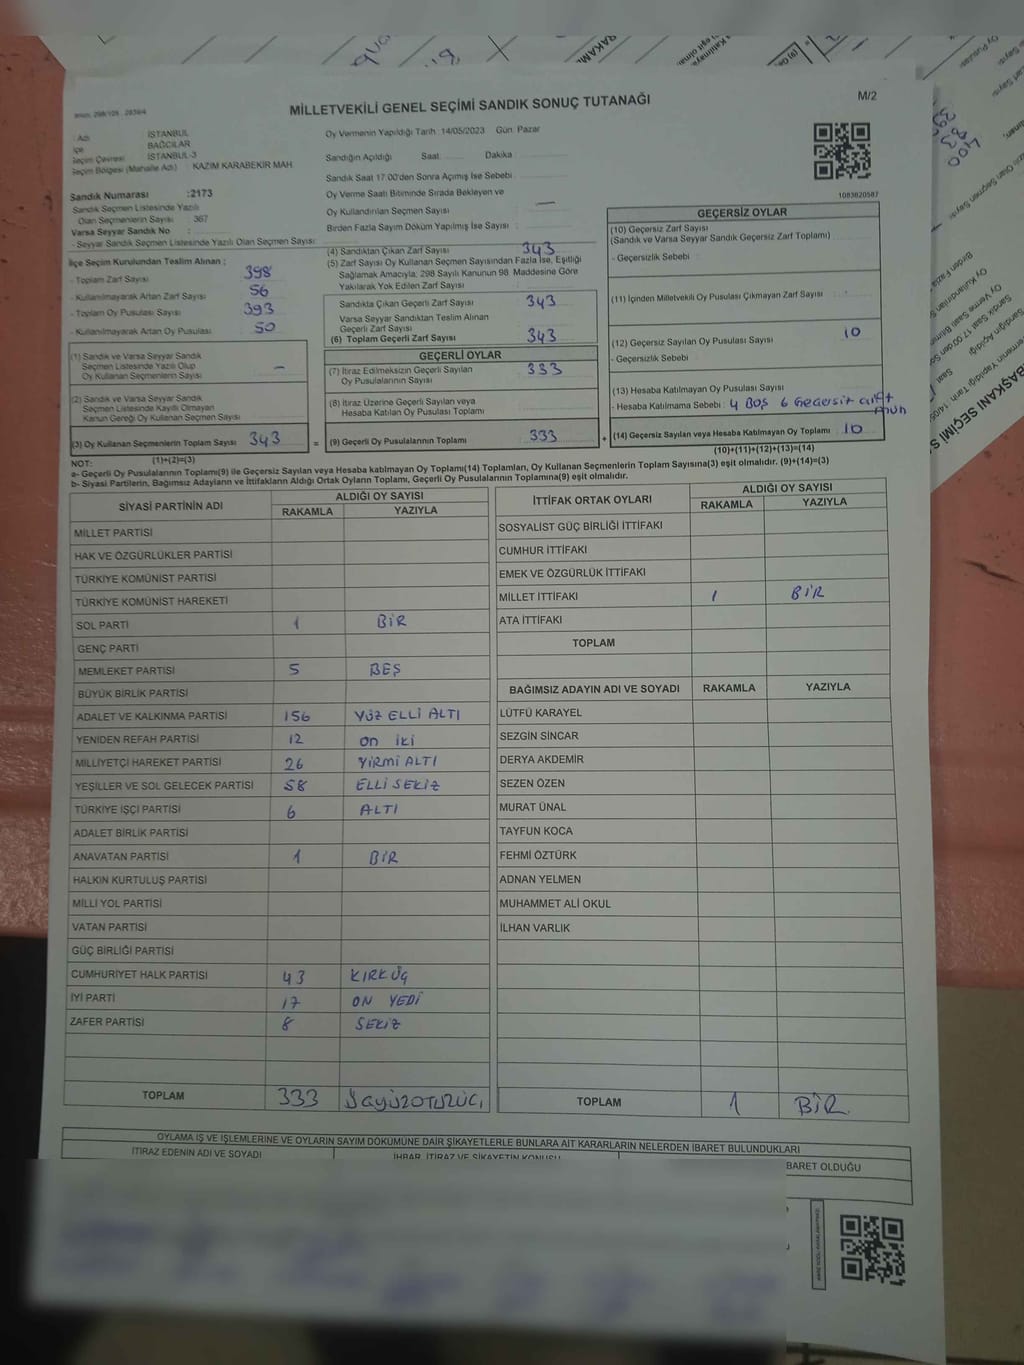 M/2
MİLLETVEKİLİ GENEL SEÇİMİ SANDIK SONUÇ TUTANAĞI
Adı : İSTANBUL
İlçe : BAĞCILAR
Seçim Çevresi : İSTANBUL-3
Seçim Bölgesi (Mahalle Adı) : KAZIM KARABEKİR MAH
Sandık Numarası :2173
Sandık Seçmen Listesinde Yazılı
Olan Seçmenlerin Sayısı : 367
Varsa Seyyar Sandık No :
- Seyyar Sandık Seçmen Listesinde Yazılı Olan Seçmen Sayısı:
Oy Vermenin Yapıldığı Tarih :14/05/2023 Gün: Pazar
Sandığın Açıldığı Saat Dakika
Sandık Saat 17.00'den Sonra Açımış İse Sebebi
Oy Verme Saati Bitiminde Sırada Bekleyen ve
Oy Kullandırılan Seçmen Sayısı : —
Birden Fazla Sayım Döküm Yapılmış İse Sayısı :
1083820587
İlçe Seçim Kurulundan Teslim Alınan ;
- Toplam Zarf Sayısı 398
- Kullanılmayarak Artan Zarf Sayısı 56
- Toplam Oy Pusulası Sayısı 393
- Kullanılmayarak Artan Oy Pusulası 50
(1) Sandık ve Varsa Seyyar Sandık
Seçmen Listesinde Yazılı Olup
Oy Kullanan Seçmenlerin Sayısı –
(2) Sandık ve Varsa Seyyar Sandık
Seçmen Listesinde Kayıtlı Olmayan
Kanun Gereği Oy Kullanan Seçmen Sayısı
(3) Oy Kullanan Seçmenlerin Toplam Sayısı 343
(1)+(2)=(3)
(4) Sandıktan Çıkan Zarf Sayısı 343
(5) Zarf Sayısı Oy Kullanan Seçmen Sayısından Fazla İse, Eşitliği
Sağlamak Amacıyla; 298 Sayılı Kanunun 98. Maddesine Göre
Yakılarak Yok Edilen Zarf Sayısı
Sandıkta Çıkan Geçerli Zarf Sayısı 343
Varsa Seyyar Sandıktan Teslim Alınan
Geçerli Zarf Sayısı
(6) Toplam Geçerli Zarf Sayısı 343
GEÇERLİ OYLAR
(7) İtiraz Edilmeksizin Geçerli Sayılan
Oy Pusulalarının Sayısı 333
(8) İtiraz Üzerine Geçerli Sayılan veya
Hesaba Katılan Oy Pusulası Toplamı
= (9) Geçerli Oy Pusulalarının Toplamı 333 +
GEÇERSİZ OYLAR
(10) Geçersiz Zarf Sayısı
(Sandık ve Varsa Seyyar Sandık Geçersiz Zarf Toplamı)
- Geçersizlik Sebebi
(11) İçinden Milletvekili Oy Pusulası Çıkmayan Zarf Sayısı
(12) Geçersiz Sayılan Oy Pusulası Sayısı 10
- Geçersizlik Sebebi
(13) Hesaba Katılmayan Oy Pusulası Sayısı
- Hesaba Katılmama Sebebi : 4 BOŞ 6 Geçersiz çift
(14) Geçersiz Sayılan veya Hesaba Katılmayan Oy Toplamı 10
(10)+(11)+(12)+(13)=(14)
NOT:
a- Geçerli Oy Pusulalarının Toplamı(9) ile Geçersiz Sayılan veya Hesaba katılmayan Oy Toplamı(14) Toplamları, Oy Kullanan Seçmenlerin Toplam Sayısına(3) eşit olmalıdır. (9)+(14)=(3)
b- Siyasi Partilerin, Bağımsız Adayların ve İttifakların Aldığı Ortak Oyların Toplamı, Geçerli Oy Pusulalarının Toplamına(9) eşit olmalıdır.
SİYASİ PARTİNİN ADI ALDIĞI OY SAYISI
RAKAMLA YAZIYLA
MİLLET PARTİSİ
HAK VE ÖZGÜRLÜKLER PARTİSİ
TÜRKİYE KOMÜNİST PARTİSİ
TÜRKİYE KOMÜNİST HAREKETİ
SOL PARTİ 1 BİR
GENÇ PARTİ
MEMLEKET PARTİSİ 5 BEŞ
BÜYÜK BİRLİK PARTİSİ
ADALET VE KALKINMA PARTİSİ 156 YÜZ ELLİ ALTI
YENİDEN REFAH PARTİSİ 12 on iki
MİLLİYETÇİ HAREKET PARTİSİ 26 YİRMİ ALTI
YEŞİLLER VE SOL GELECEK PARTİSİ 58 ELLİ SEKİZ
TÜRKİYE İŞÇİ PARTİSİ 6 ALTI
ADALET BİRLİK PARTİSİ
ANAVATAN PARTİSİ 1 BİR
HALKIN KURTULUŞ PARTİSİ
MİLLİ YOL PARTİSİ
VATAN PARTİSİ
GÜÇ BİRLİĞİ PARTİSİ
CUMHURİYET HALK PARTİSİ 43 KIRKÜÇ
İYİ PARTİ 17 ON YEDİ
ZAFER PARTİSİ 8 SEKİZ
TOPLAM 333
İTTİFAK ORTAK OYLARI ALDIĞI OY SAYISI
RAKAMLA YAZIYLA
SOSYALİST GÜÇ BİRLİĞİ İTTİFAKI
CUMHUR İTTİFAKI
EMEK VE ÖZGÜRLÜK İTTİFAKI
MİLLET İTTİFAKI 1 BİR
ATA İTTİFAKI
TOPLAM
BAĞIMSIZ ADAYIN ADI VE SOYADI RAKAMLA YAZIYLA
LÜTFÜ KARAYEL
SEZGİN SİNCAR
DERYA AKDEMİR
SEZEN ÖZEN
MURAT ÜNAL
TAYFUN KOCA
FEHMİ ÖZTÜRK
ADNAN YELMEN
MUHAMMET ALİ OKUL
İLHAN VARLIK
TOPLAM 1 BİR
OYLAMA İŞ VE İŞLEMLERİNE VE OYLARIN SAYIM DÖKÜMÜNE DAİR ŞİKAYETLERLE BUNLARA AİT KARARLARIN NELERDEN İBARET BULUNDUKLARI
İTİRAZ EDENİN ADI VE SOYADI
İHBAR, İTİRAZ VE ŞİKAYETİN KONUSU
BARET OLDUĞU